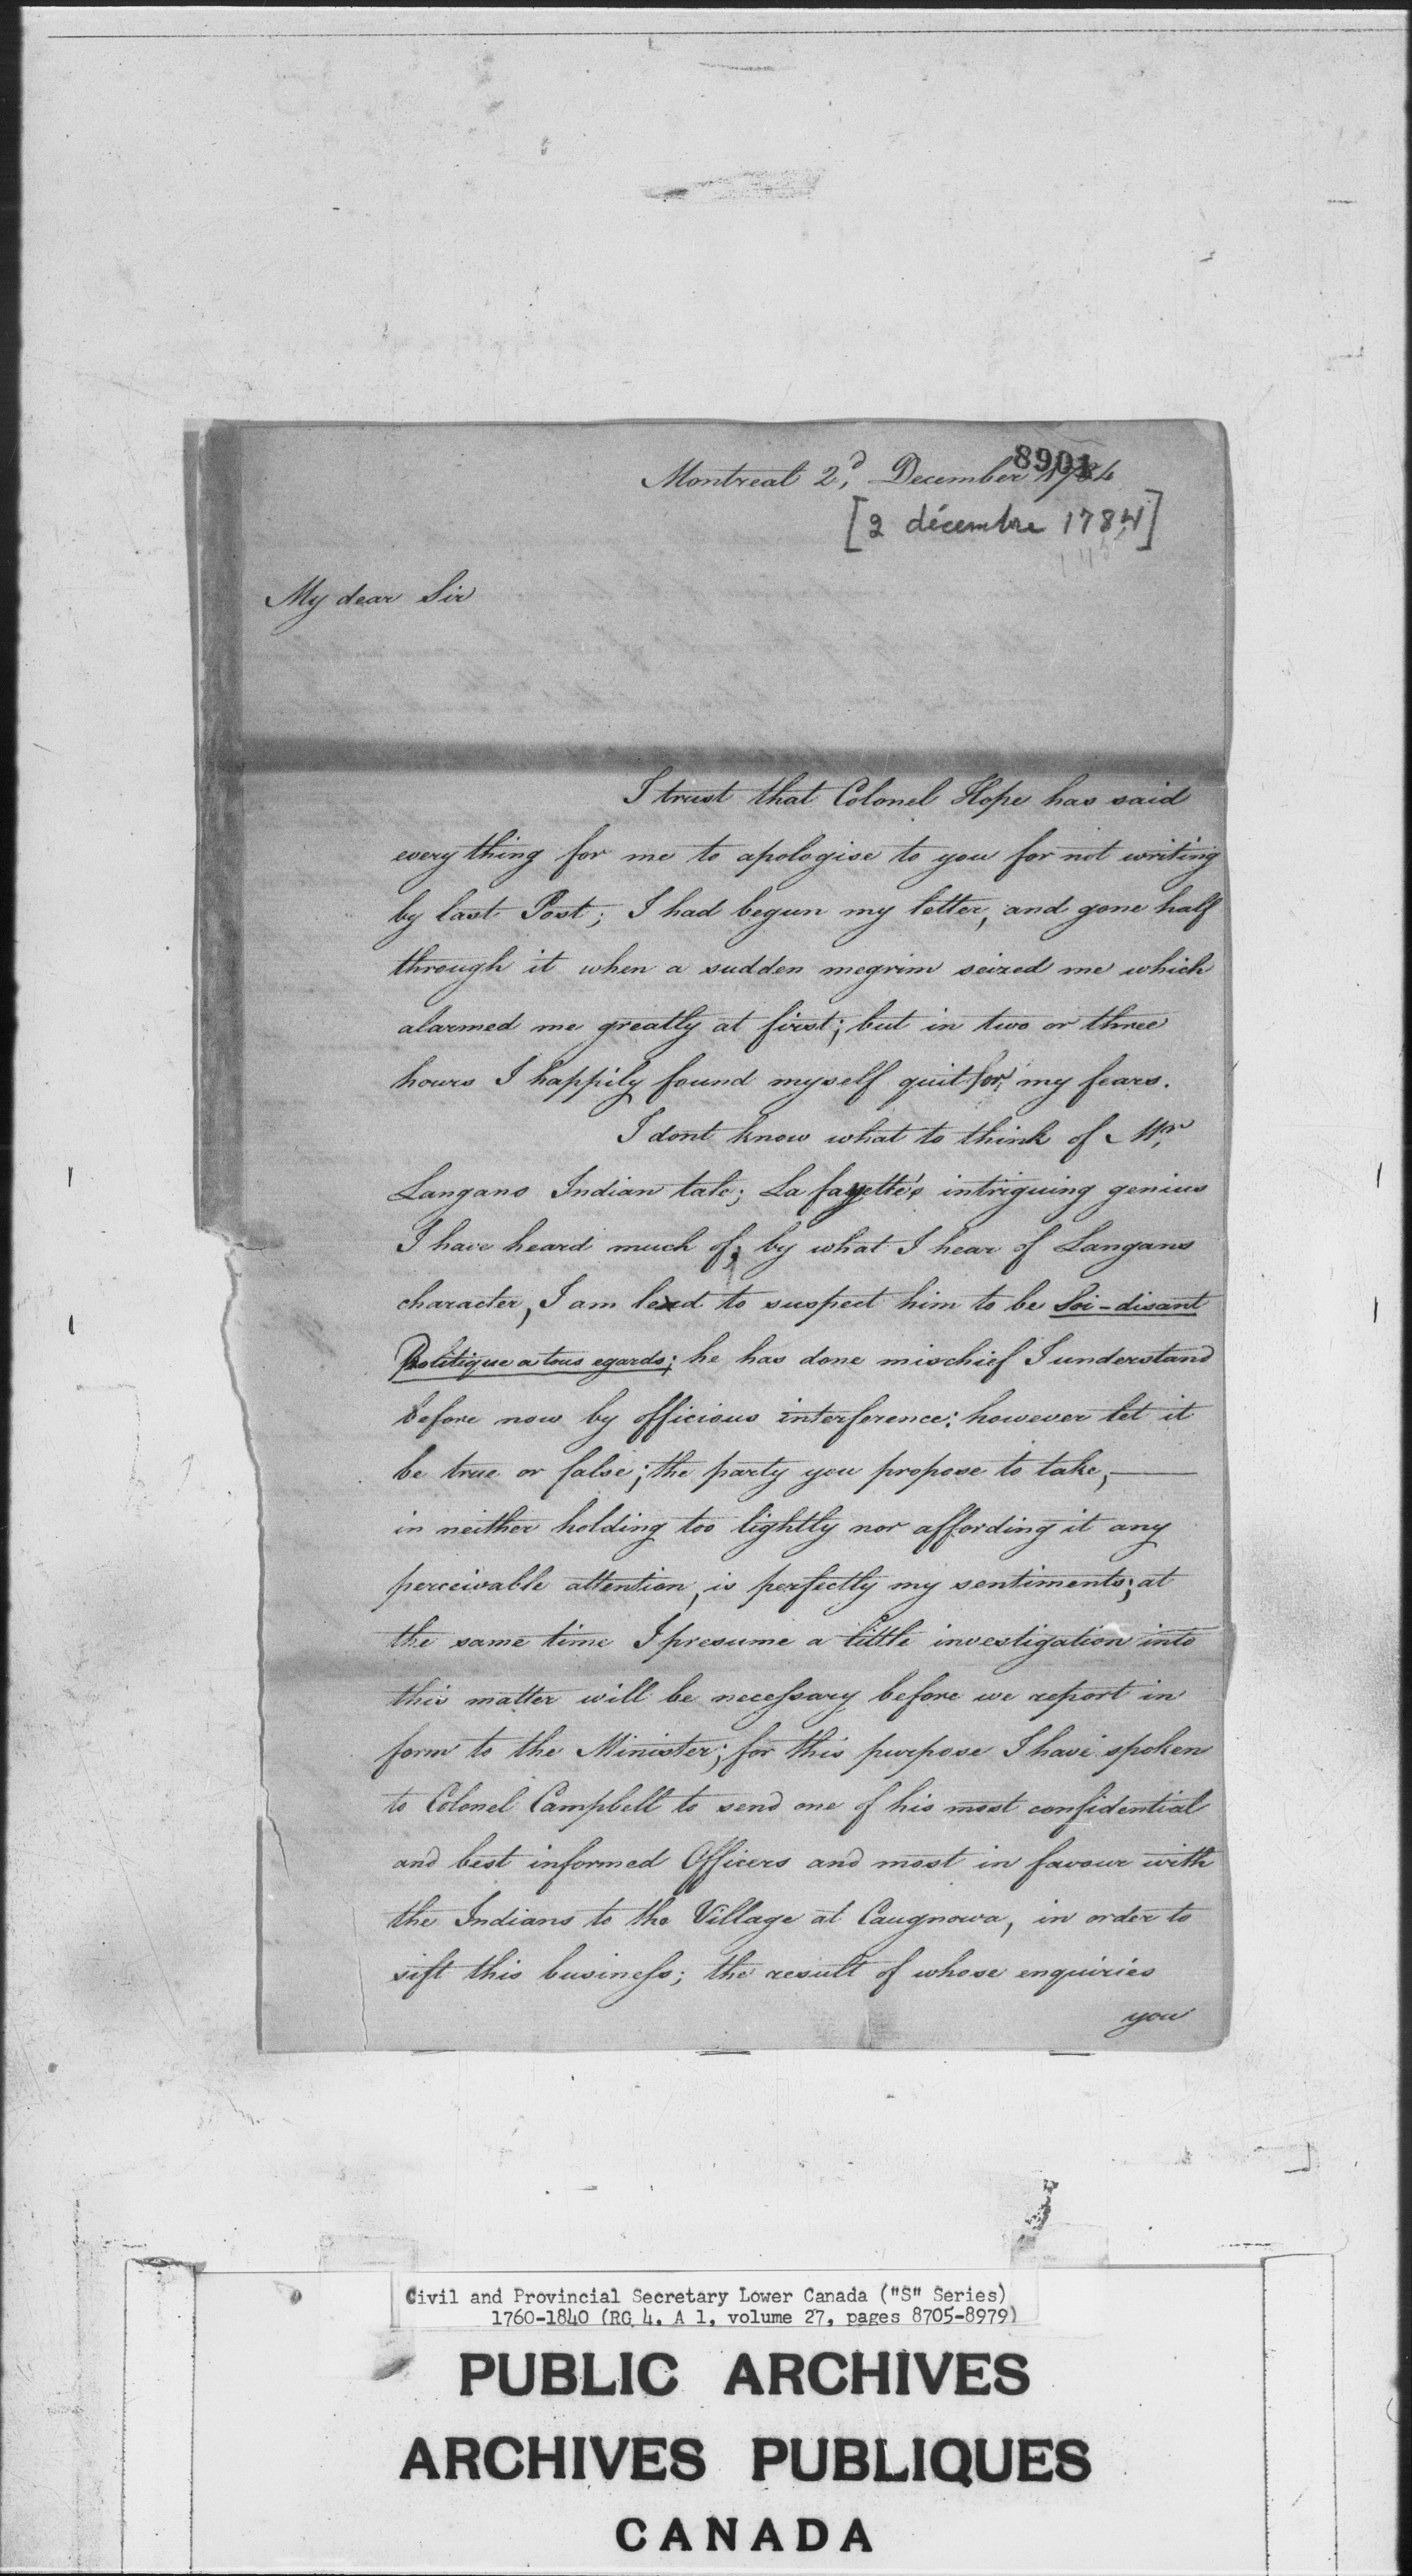 8901
Montreal 2d, December 1784
[2 décembre 1784]
My dear Sir
I trust that Colonel Hope has said
every thing for me to apologise to you for not writing
by last Post; I had begun my letter, and gone half
through it when a sudden megrim seized me which
alarmed me greatly at first; but in two or three
hours I happily found myself quit for my fears.
I dont know what to think of Mr,
Langans Indian tale; La fayette's intriguing genius
I have heard much of; by what I hear of Langans
character, I am led to suspect him to be Soi-disant
Politique a tous egards; he has done mischief I understand
before now by officious interference: however let it
be true or false; the party you propose to take,—
in neither holding too lightly nor affording it any
perceivable attention, is perfectly my sentiments; at
the same time I presume a little investigation into
this matter will be necessary before we report in
form to the Minister; for this purpose I have spoken
to Colonel Campbell to send one of his most confidential
and best informed Officers and most in favour with
the Indians to the Village at Caugnowa, in order to
sift this business; the result of whose enquiries
you
Civil and Provincial Secretary Lower Canada ("S" Series)
1760-1840 (RG 4, A 1, volume 27, pages 8705-8979)
PUBLIC ARCHIVES
ARCHIVES PUBLIQUES
CANADA